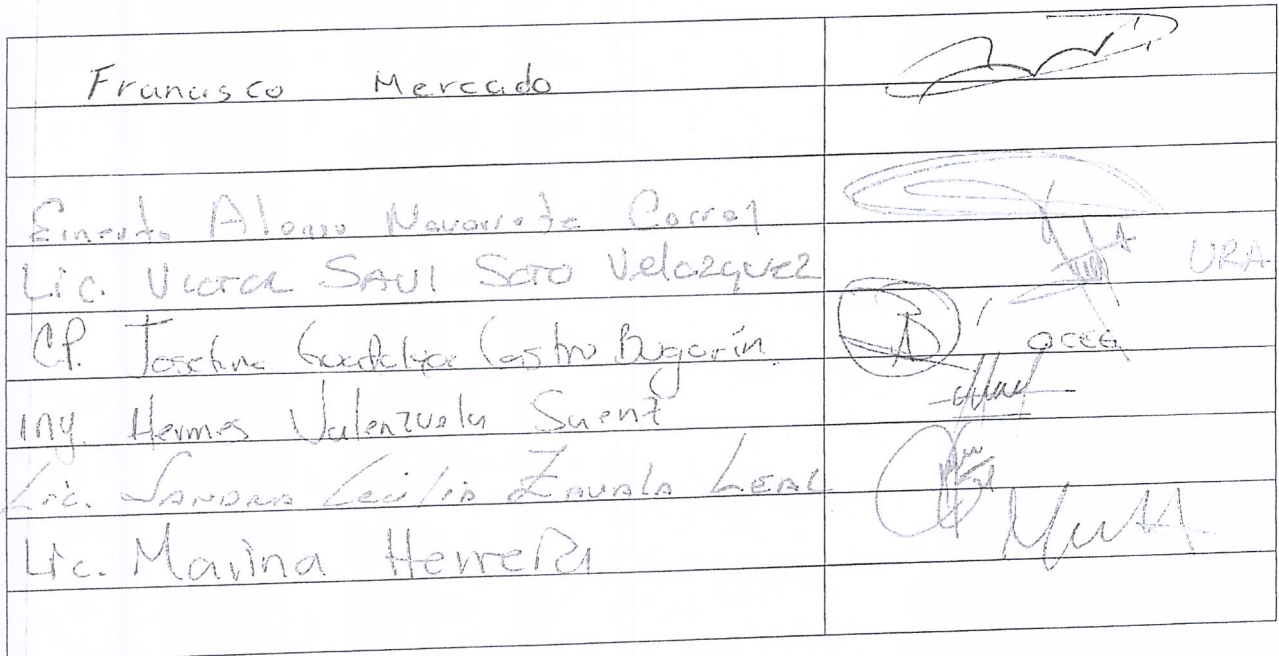 Francisco Mercado
Ernesto Alonso Navarrete Corral
Lic. Victor SAUl Soto Velazquez URA
CP. Josefina Guadalupe Castro Bugarín OCEG
Ing. Hermes Valenzuela Saenz
Lic. SANDRA Cecilia ZAVALA LEAL
Lic. Marina Herrera